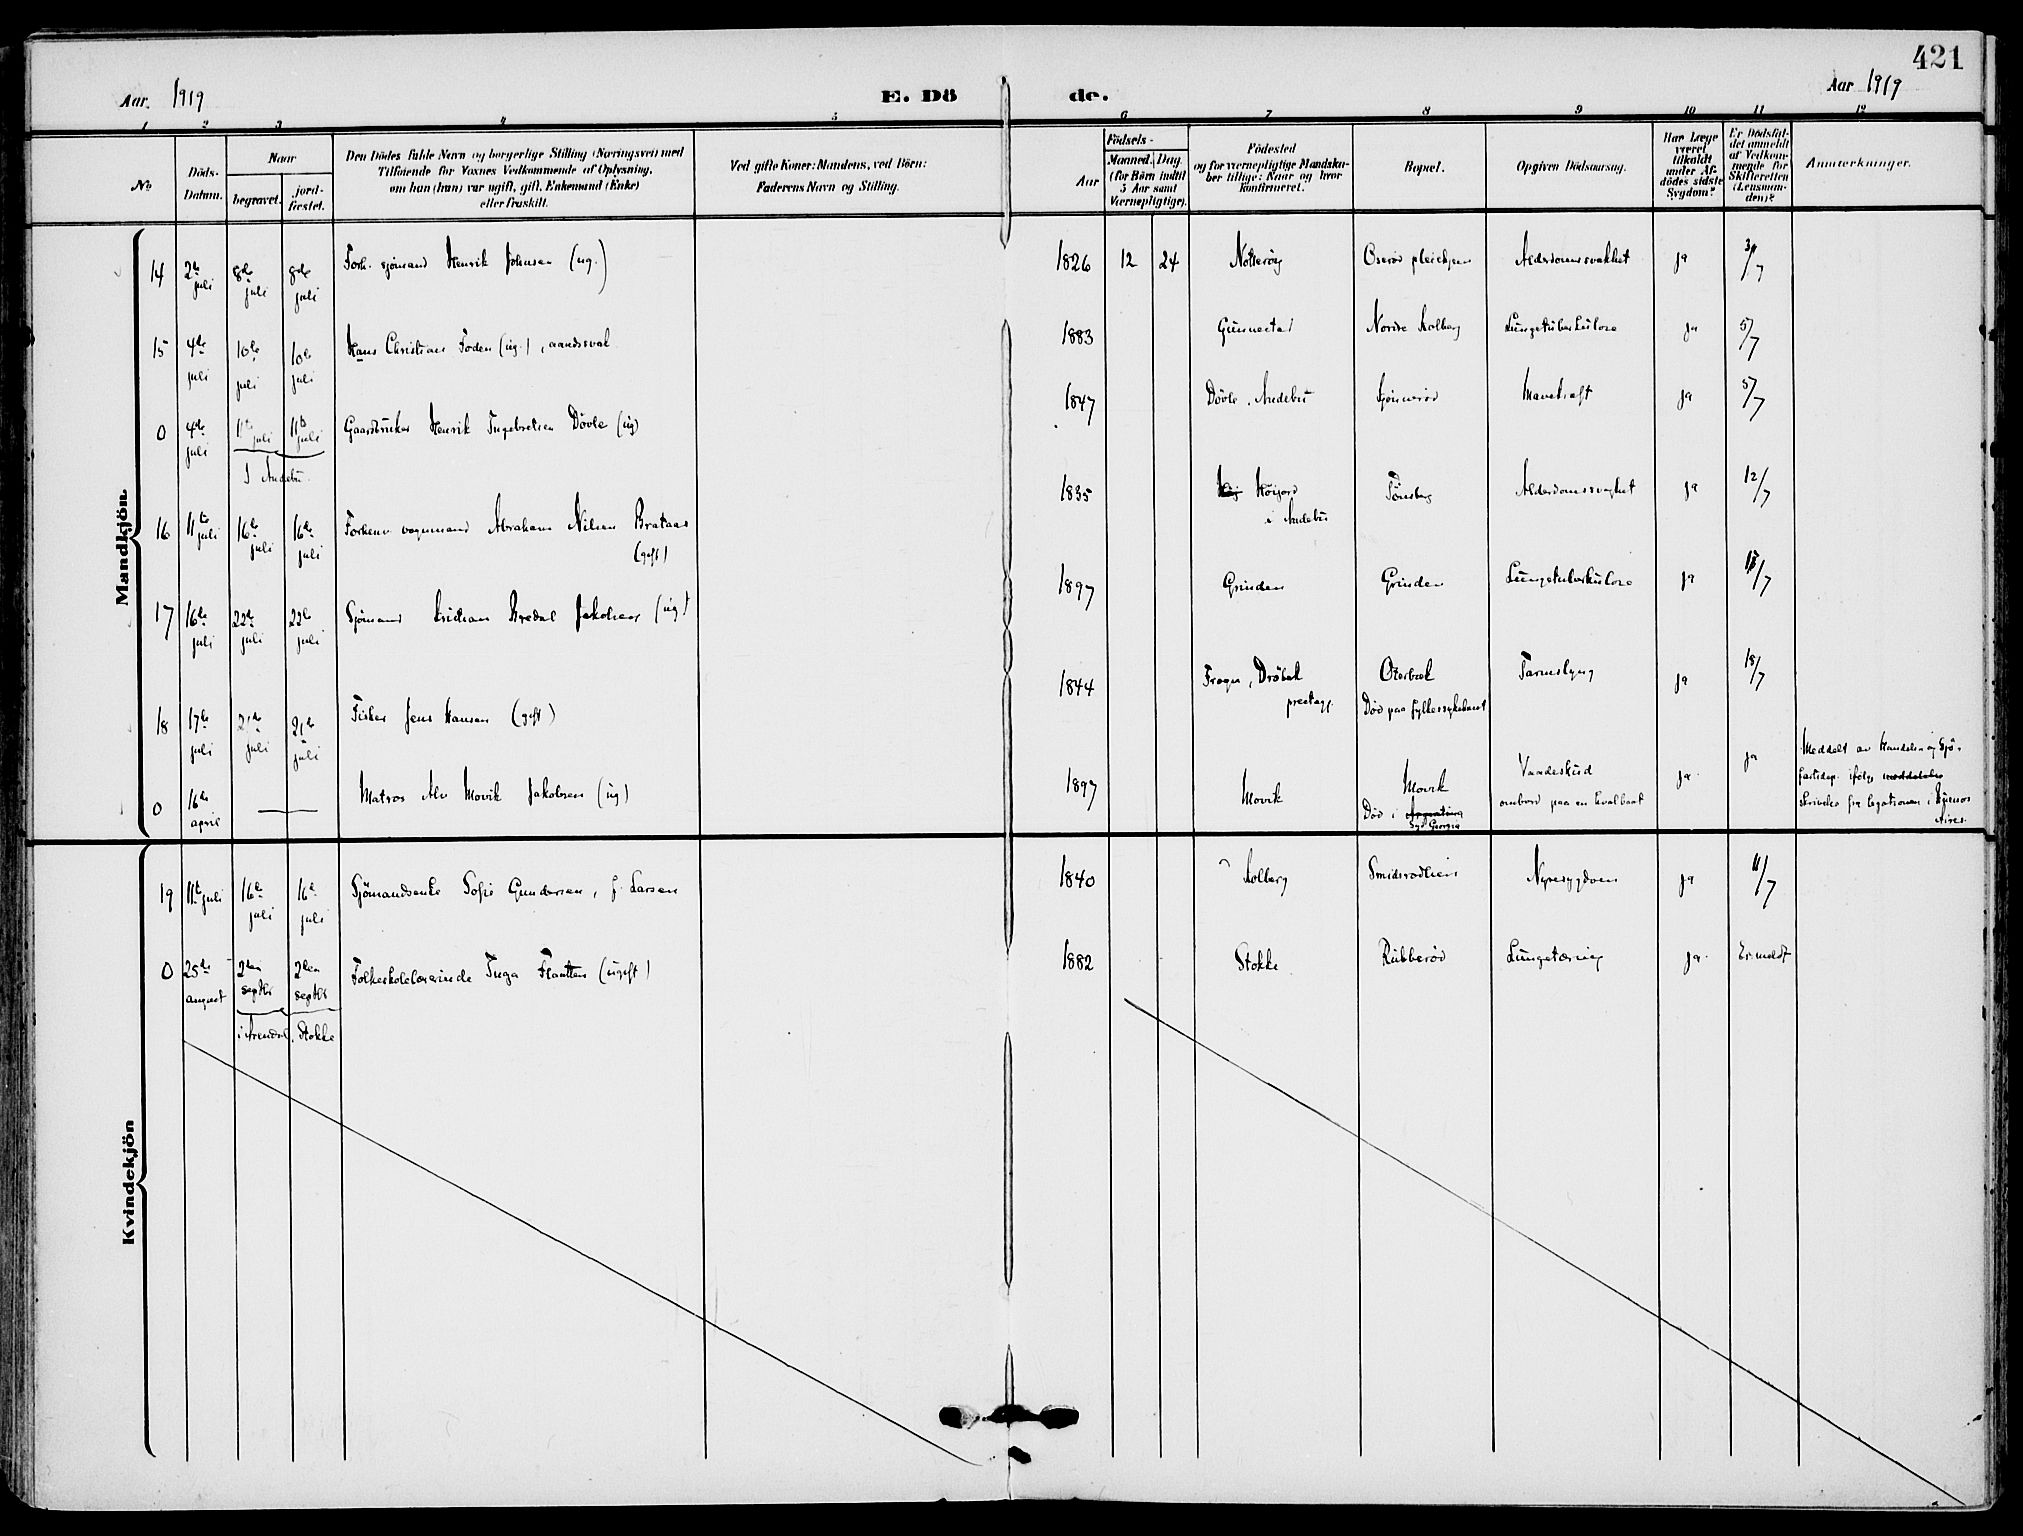 421
Aar. 1919
E. Dö de.
Aar 1919
1 2 3 4 5 6 7 8 9 10 11 12
No
Döds-
Datum.
Naar
begravet.
jord-
fæstet.
Den Dödes fulde Navn og borgerlige Stilling (Næringsvei) med
Tilföiende for Voxnes Vedkommende af Oplysning,
om hun (han) var ugift, gift, Enkemand (Enke)
eller fraskilt.
Ved gifte Koner: Mandens, ved Börn:
Faderens Navn og Stilling.
Födsels-
Aar
Maaned. Dag.
(for Börn indtil
5 Aar samt
Værnepligtige).
Födested
og for værnepligtige Mandska-
ber tillige: Naar og hvor
konfirmeret.
Bopæl.
Opgiven Dödsaarsag.
Har Læge
været
tilkaldt
under Af-
dödes sidste
Sygdom?
Er Dödsfal-
det anmeldt
af Vedkom-
mende for
Skifteretten
(Lensman-
den)?
Anmerkninger.
Mandkjön
14 2de juli 8de juli 8de juli Forh. sjömand Henrik Johnsen (ug.) 1826 12 24 Nötteröy Oserød pleiehjem Alderdomssvakhet ja 3/7
15 4de juli 10de juli 10de juli Hans Christian Foden (ug.), aandssvak 1883 Gunnestad Nordre Solberg Lungetuberkulose ja 5/7
0 4de juli 11te juli 11te juli Gaardbruker Henrik Ingebretsen Dövle (ug) 1847 Dövle, Andebu Mavekræft ja 5/7
I Andebu.
16 11te juli 16de juli 16de juli Forhenv vognmand Abraham Nilsen Brataas
(gift) 1835 Höijord
i Andebu Tönsberg Alderdomssvaghet ja 12/7
17 16de juli 22de juli 22de juli Sjömand Kristian Bredal Jakobsen (ug) 1897 Grinden Grinden Lungetuberkulose ja /7
18 17de juli 21de juli 21de juli Fisker Jens Hansen (gift) 1844 Frogn, Dröbak
prestegj. Oterbæk
Död paa fylkessykehuset Tarmslyng ja 18/7
0 16de april — Matros Alv Movik Jakobsen (ug) 1897 Movik Movik
Död i Argentina
Syd Georgia Vaadeskud
ombord paa en hvalbaat ja. ja Meddelt av Handels og Sjö-
fartsdep. ifölge meddelelse
skrivelse fra legationen i Buenos
Aires.
Kvindekjön
19 11te juli 16de juli 16de juli Sjömandsenke Sofie Gundersen, f. Larsen 1840 Solberg Smidsrödlien Nyresygdom ja 11/7
0 25de august 2den septbr 2den septbr Folkeskolelærerinde Inga Flaatten (ugift) 1882 Stokke Rubberød Lungetæring ja. Er meldt
i Arendal, Stokke